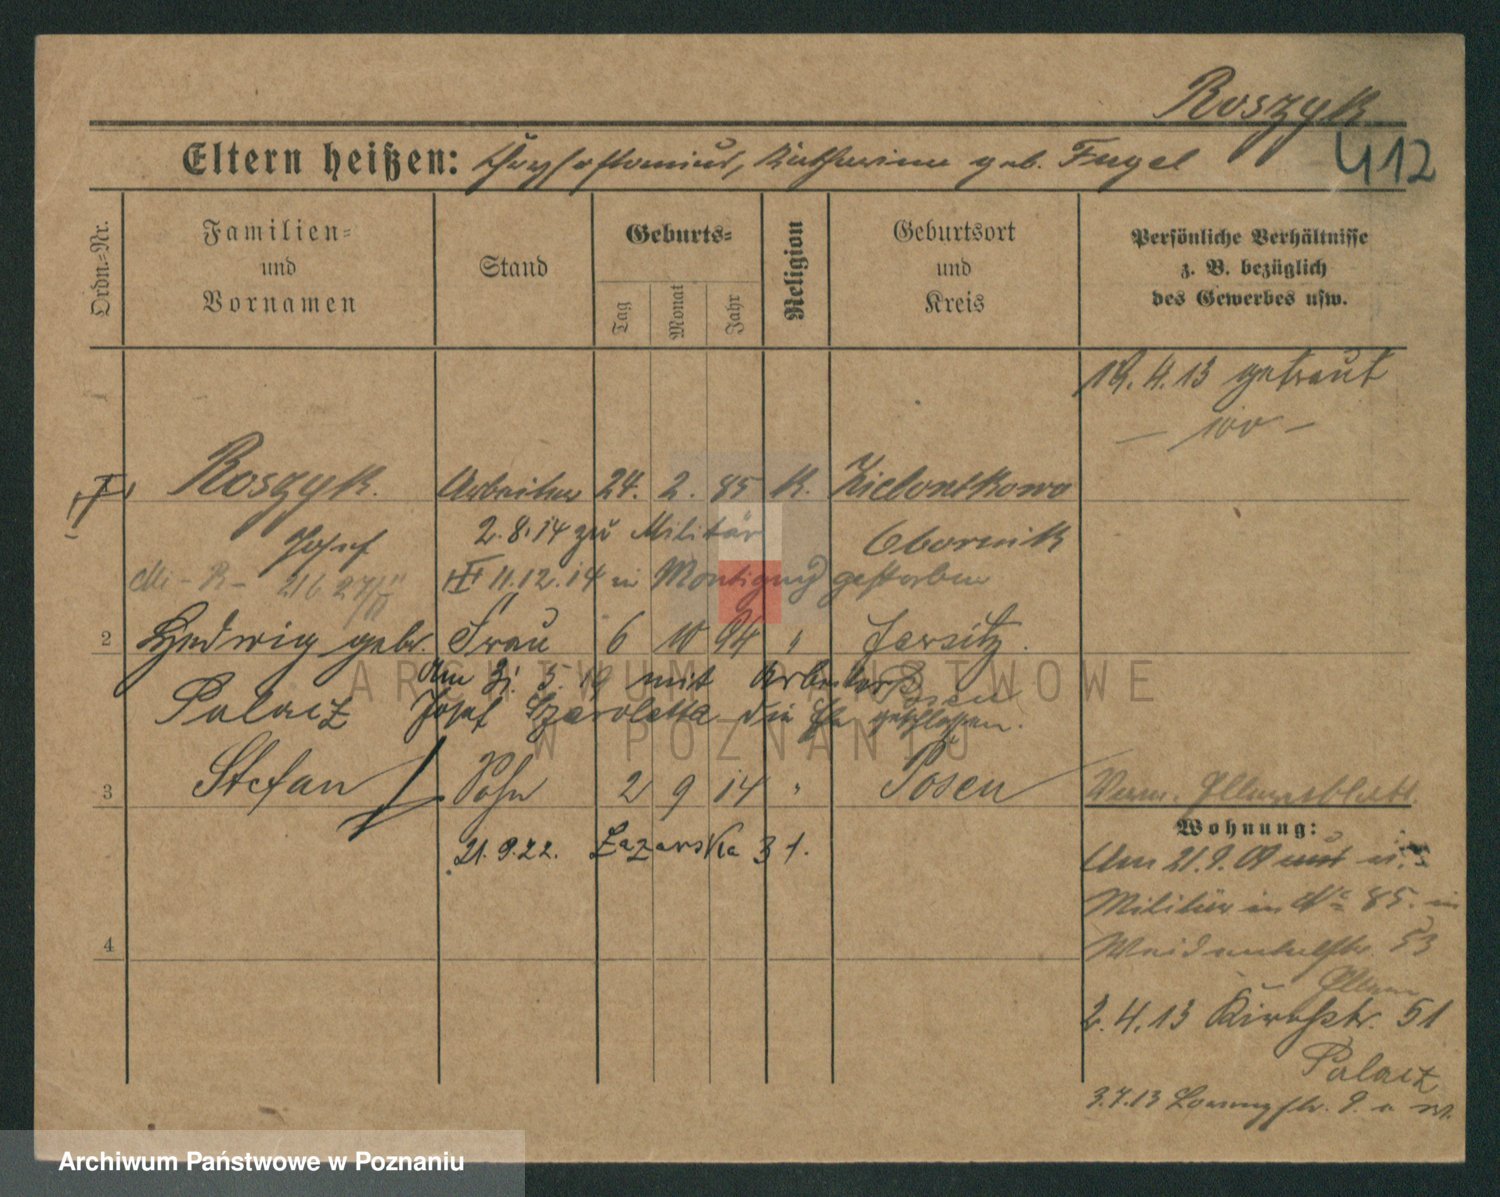 Roszyk
412
Eltern heißen: Chrysostomius, Katharina geb. Fugel
Ordn.-Nr.
Familien- und Vornamen
Stand
Geburts-
Tag
Monat
Jahr
Religion
Geburtsort und Kreis
Persönliche Verhältnisse
z. B. bezüglich
des Gewerbes usw.
4.13 getraut
Roszyk. Arbeiter 24. 2. 85 K. Zielontkowo
Josef
2.8.14 zu Militär
Obornik
11.12.14 in Montigny gestorben
2 Hedwig geb. Frau 6 10 94 " Jersitz.
Palacz
Am 31. 5. 19 mit Arbeiter
Posen
Josef die Ehe geschlossen.
3 Stefan Sohn 2 9 14 " Posen
Wohnung:
21.9.22. Łazarska 31.
Am 21.9.09
Militär in 85. in
4
53
Eltern
2.4.13 Kirchstr. 51
Palacz
3.7.13
ARCHIWUM PAŃSTWOWE
W POZNANIU
Archiwum Państwowe w Poznaniu